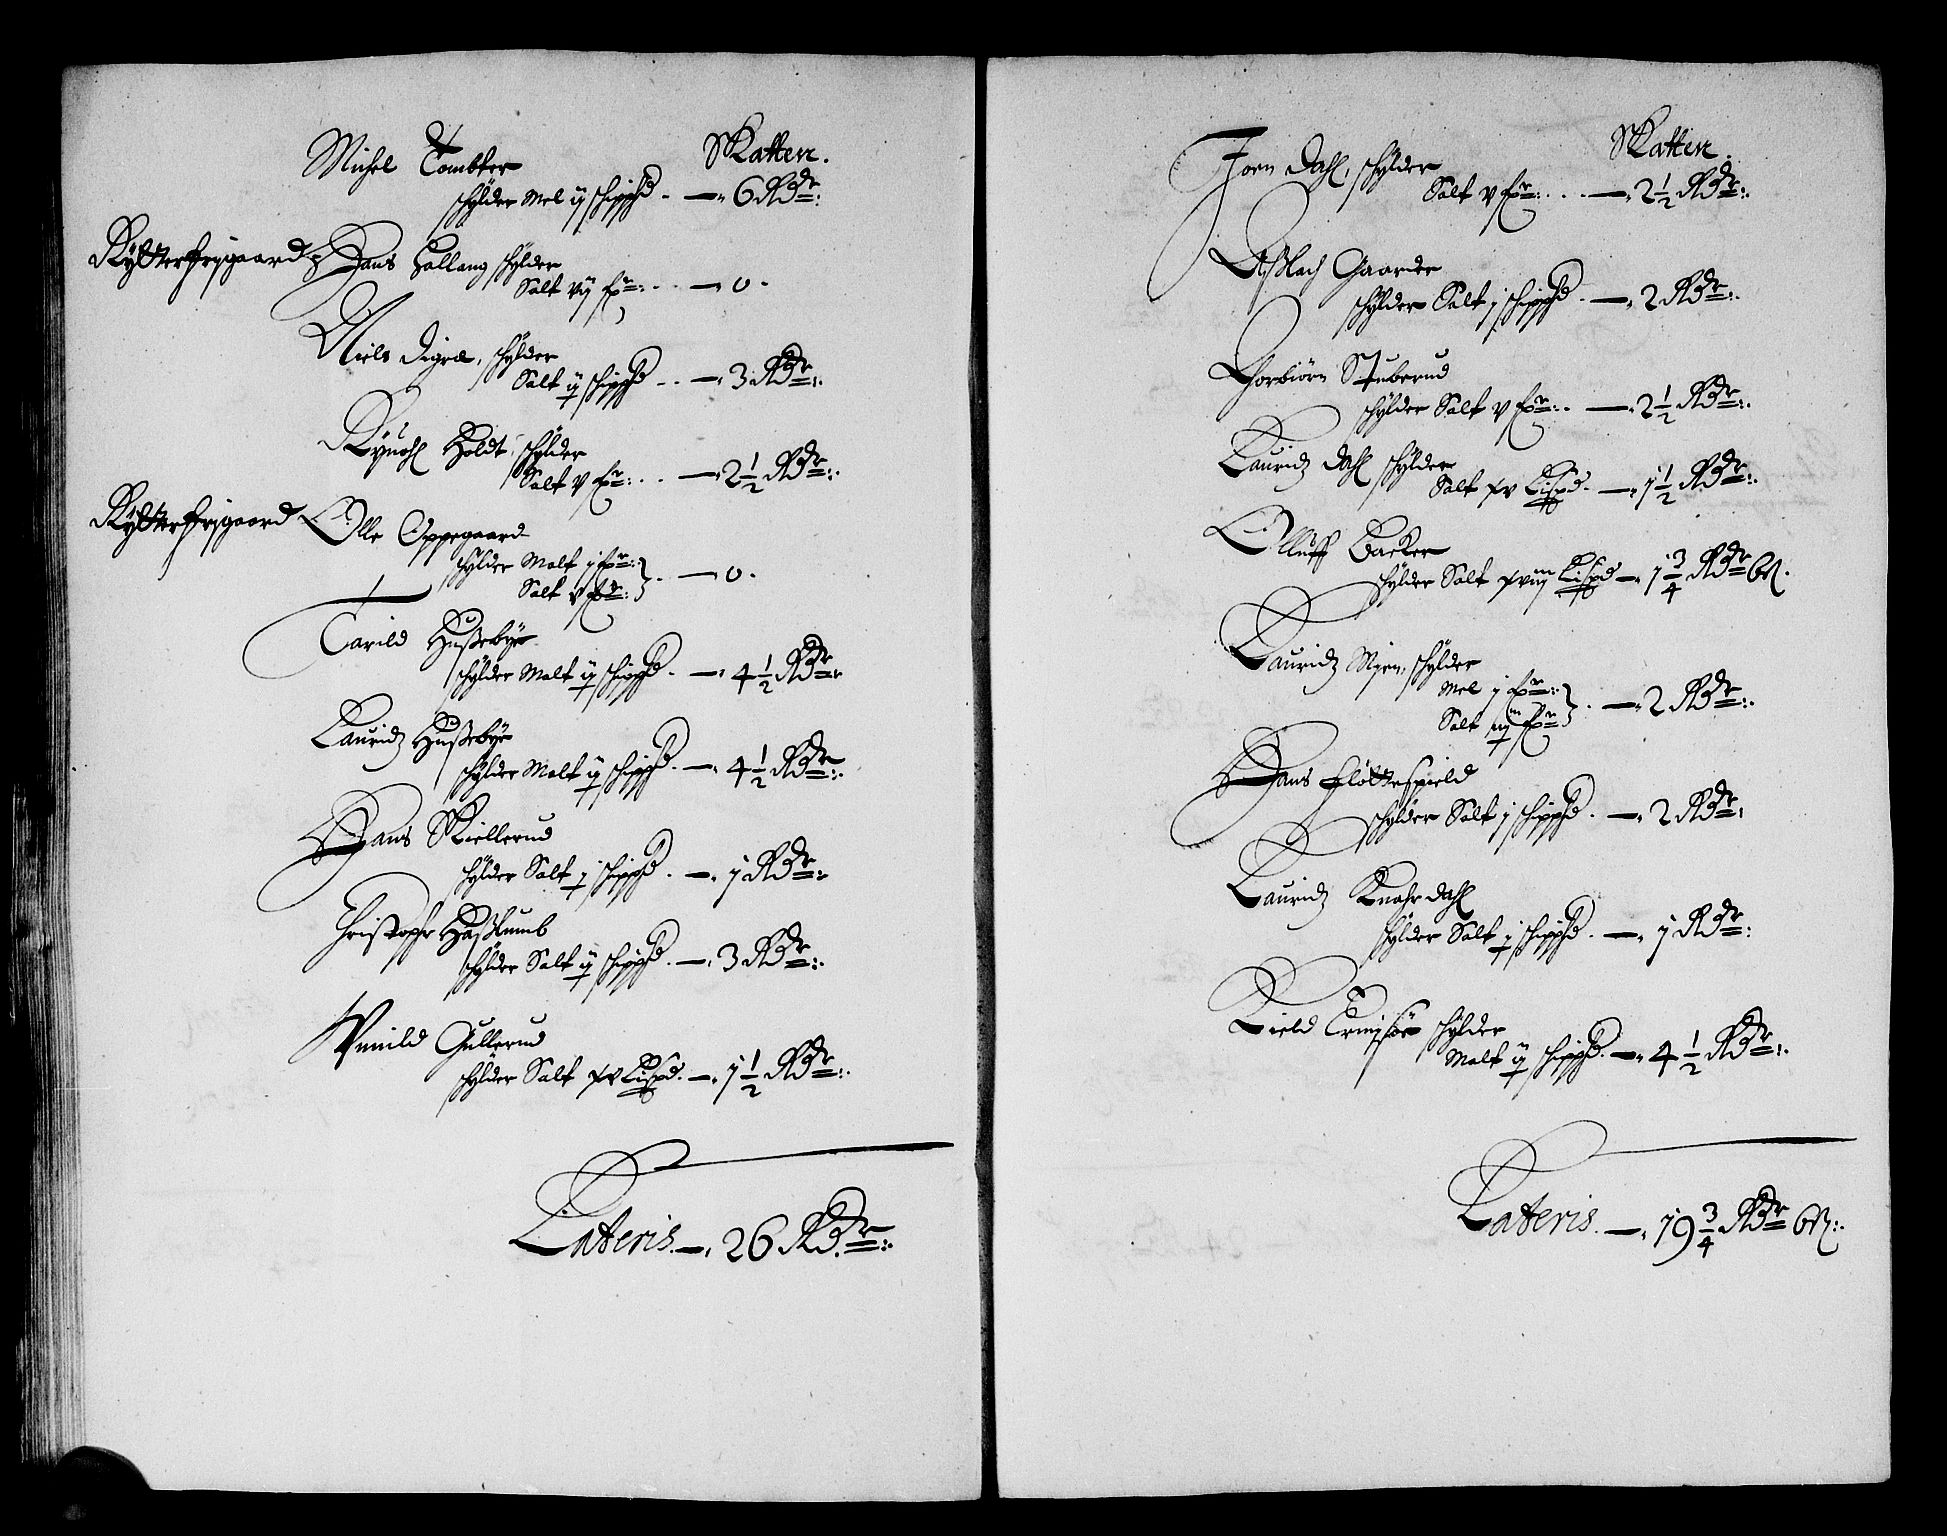 Skatten.
Michel Tombter
schylder Mel ij schippd. — 6 Rdr:
Rytterfrjgaard Hans Hallang schylder
Salt vij fr: . . — 0.
Niels Digra, schylder
Salt ij schippd . . — 3 Rdr:.
Holdt, schylder
Salt v fr: . . — 2½ Rdr:.
Rytterfrjgaard Olle Oppegaard
schylder Malt j fr:
Salt v fr: } . — 0.
Tarild Hussebye
schylder Malt ij schippd. — 4½ Rdr:
Lauridz Hussebye
schylder Malt ij schippd. — 4½ Rdr:.
Hans Skiellerud
schylder Salt j schippd. — j Rdr:
Christopher Hasslumb
schylder Salt ij schippd. — 3 Rdr:.
Gullerud
schylder Salt xv Lispd. — j½ Rdr:.
Lateris. — 26 Rdr:.
Skatten.
Joen Dahl, schylder
Salt v fr: . . . — 2½ Rdr:.
Assllach Gaarder
schylder Salt j schippd. — 2 Rdr:.
Torbiörn Stuberud
schylder Salt v fr: . — 2½ Rdr:.
Lauridz Dahl schylder
Salt xv Lispd. — j½ Rdr:.
Olluff Backer
schylder Salt xviij Lispd — j¾ Rdr 6 ß.
Lauridz Myren, schylder
Mel j fr:
Salt iij fr } . — 2 Rdr:.
Hans Fløttespield
schylder Salt j schippd. — 2 Rdr:
Lauridz Knahr dahl
schylder Salt j schippd. — j Rdr:
Kield Ermjsøe schylder
Malt ij schippd. — 4½ Rdr:.
Lateris. — 19¾ Rdr 6 ß:.